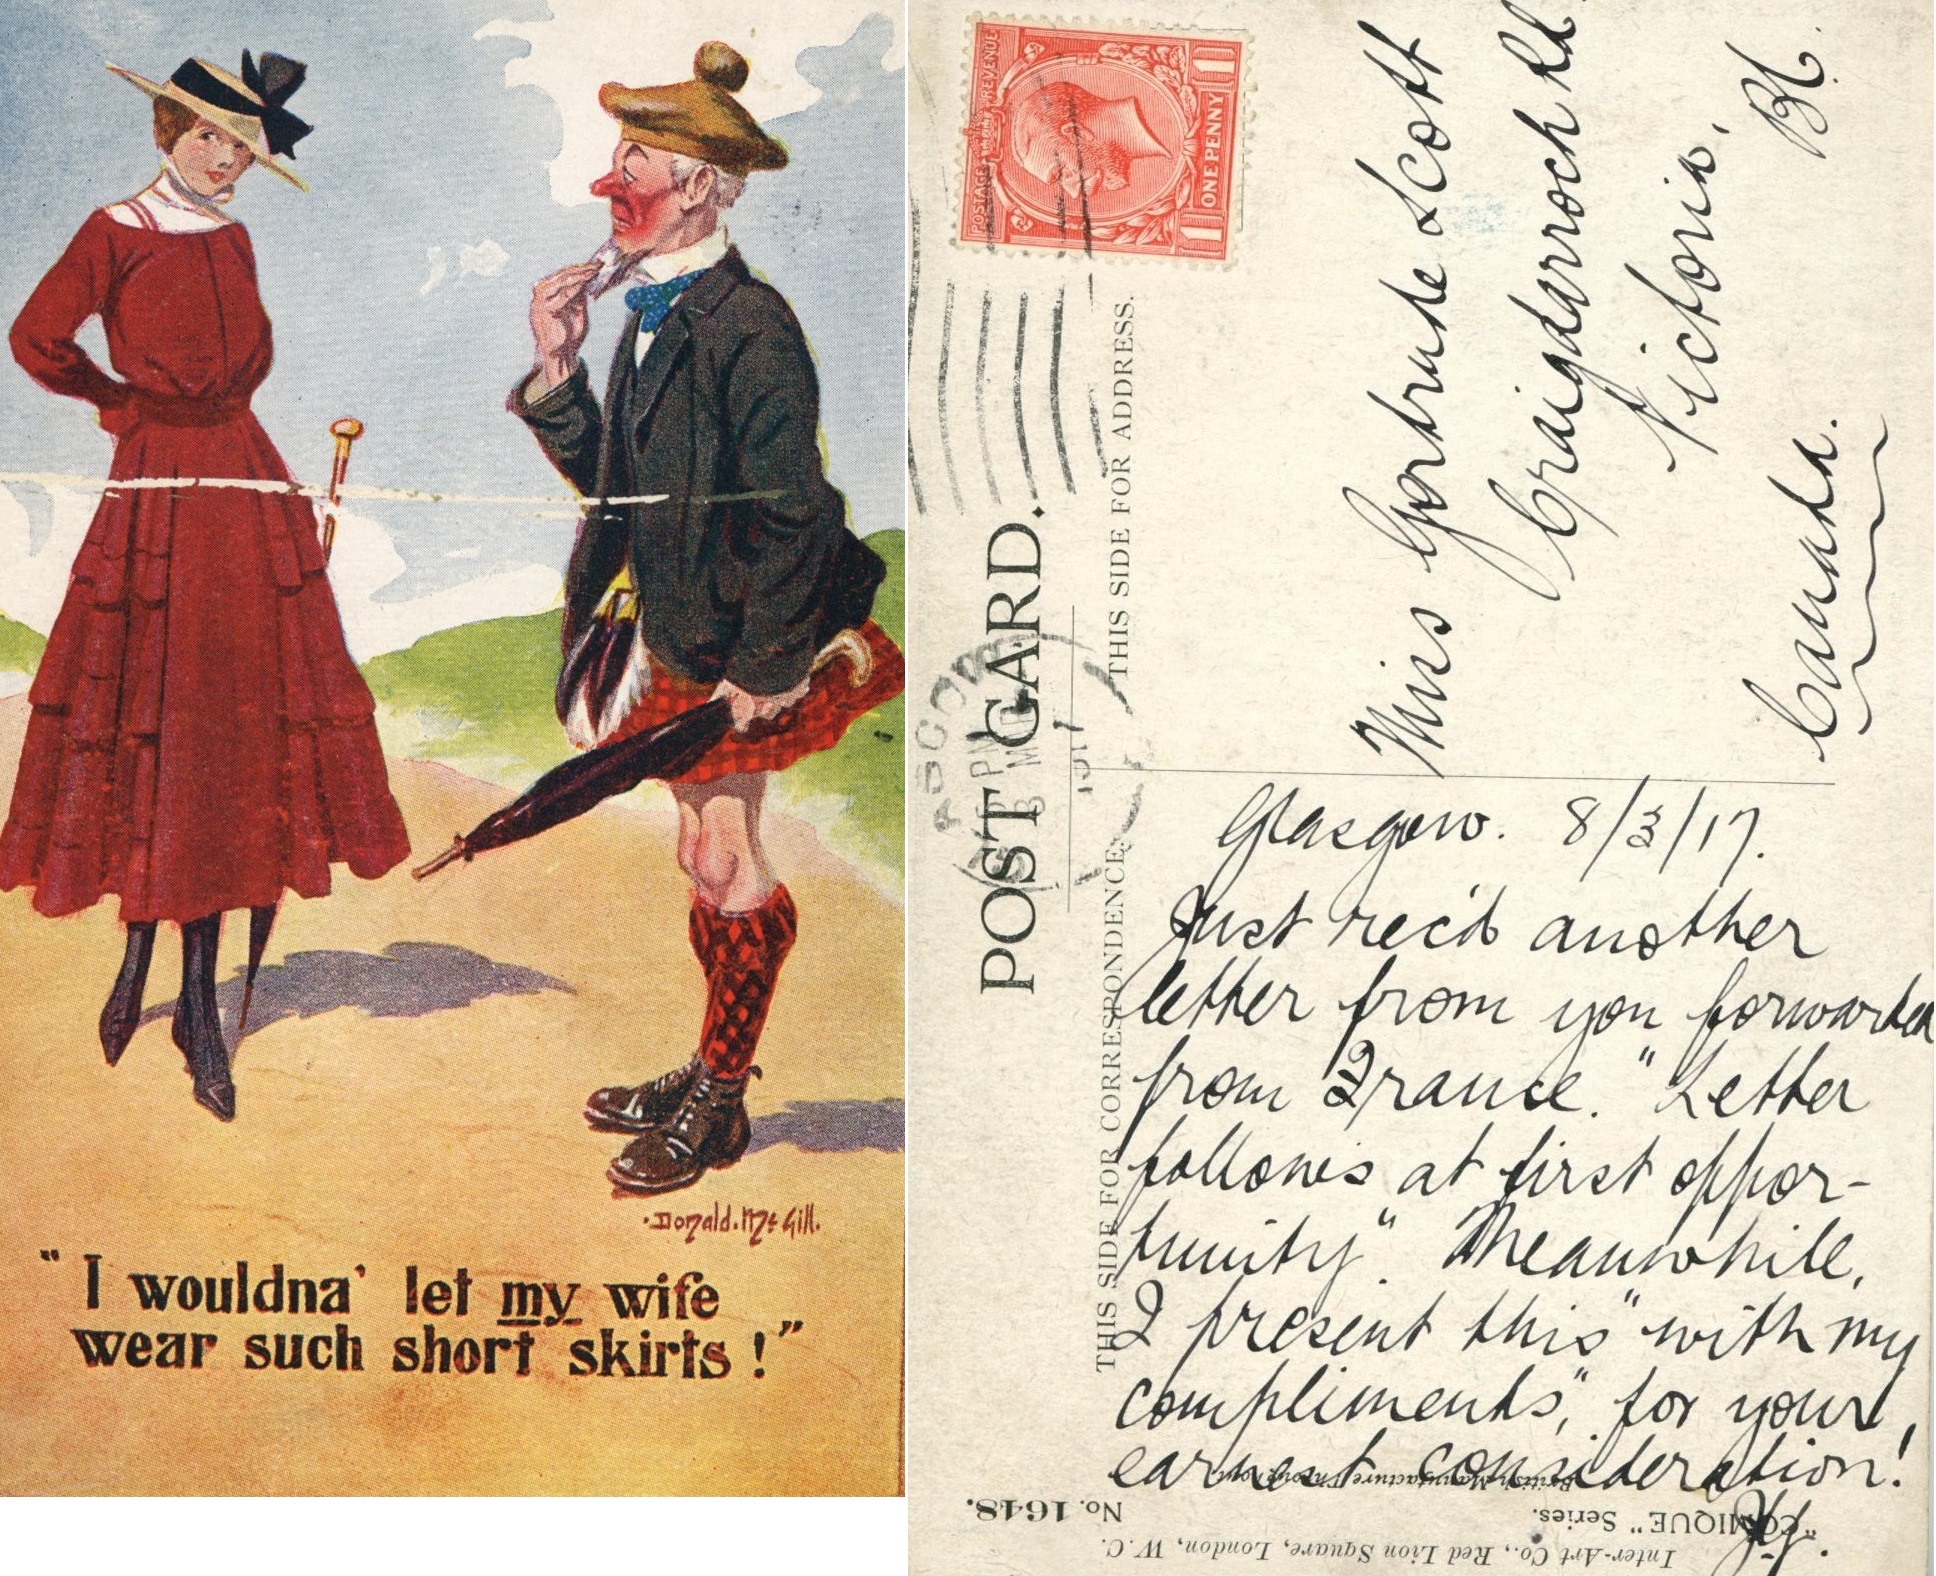 ·Donald.McGill.
"I wouldna' let my wife
wear such short skirts!"
POSTAGE
REVENUE
ONE PENNY
1
1
POST CARD.
THIS SIDE FOR CORRESPONDENCE.
THIS SIDE FOR ADDRESS.
Miss Gertrude Scott
Craigdarroch Rd.
Victoria,
B.C.
Canada.
Glasgow. 8/3/17.
Just rec'd another
letter from you forwarded
from France. "Letter
follows at first oppor-
tunity". Meanwhile,
I present this "with my
compliments", for your
earnest consideration!
British Manufacture Throughout
"COMIQUE" Series.
No. 1648.
Inter-Art Co., Red Lion Square, London, W.C.